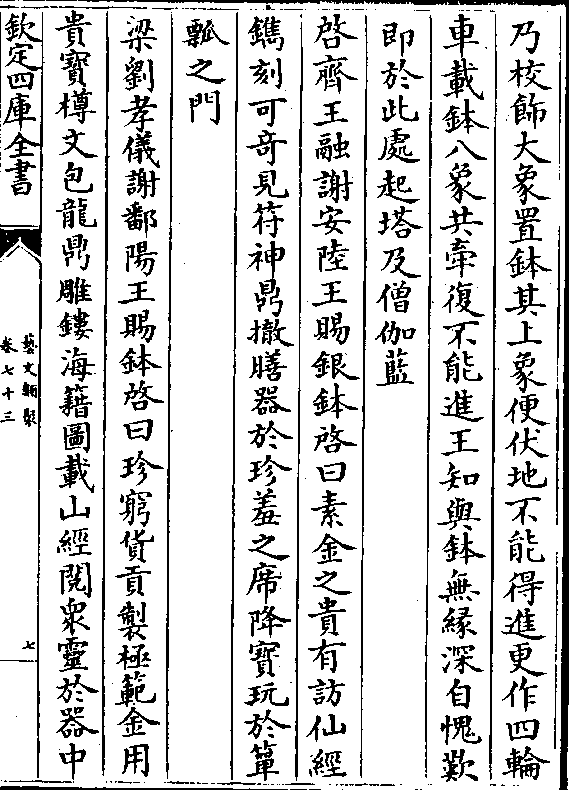 乃校飾大象置鉢其上象便伏地不能得進更作四輪
車載鉢八象共牽復不能進王知與鉢無緣深自愧歎
即於此處起塔及僧伽藍
啓齊王融謝安陸王賜銀鉢啓曰素金之貴有訪仙經
鐫刻可竒見符神鼎撤膳器於珍羞之席降寶玩於簞
瓢之門
梁劉孝儀謝鄱陽王賜鉢啓曰珍窮貨貢製極範金用
貴寶樽文包龍鼎雕鏤海籍圖載山經閱衆靈於器中
欽定四庫全書
藝文類聚
卷七十三
七